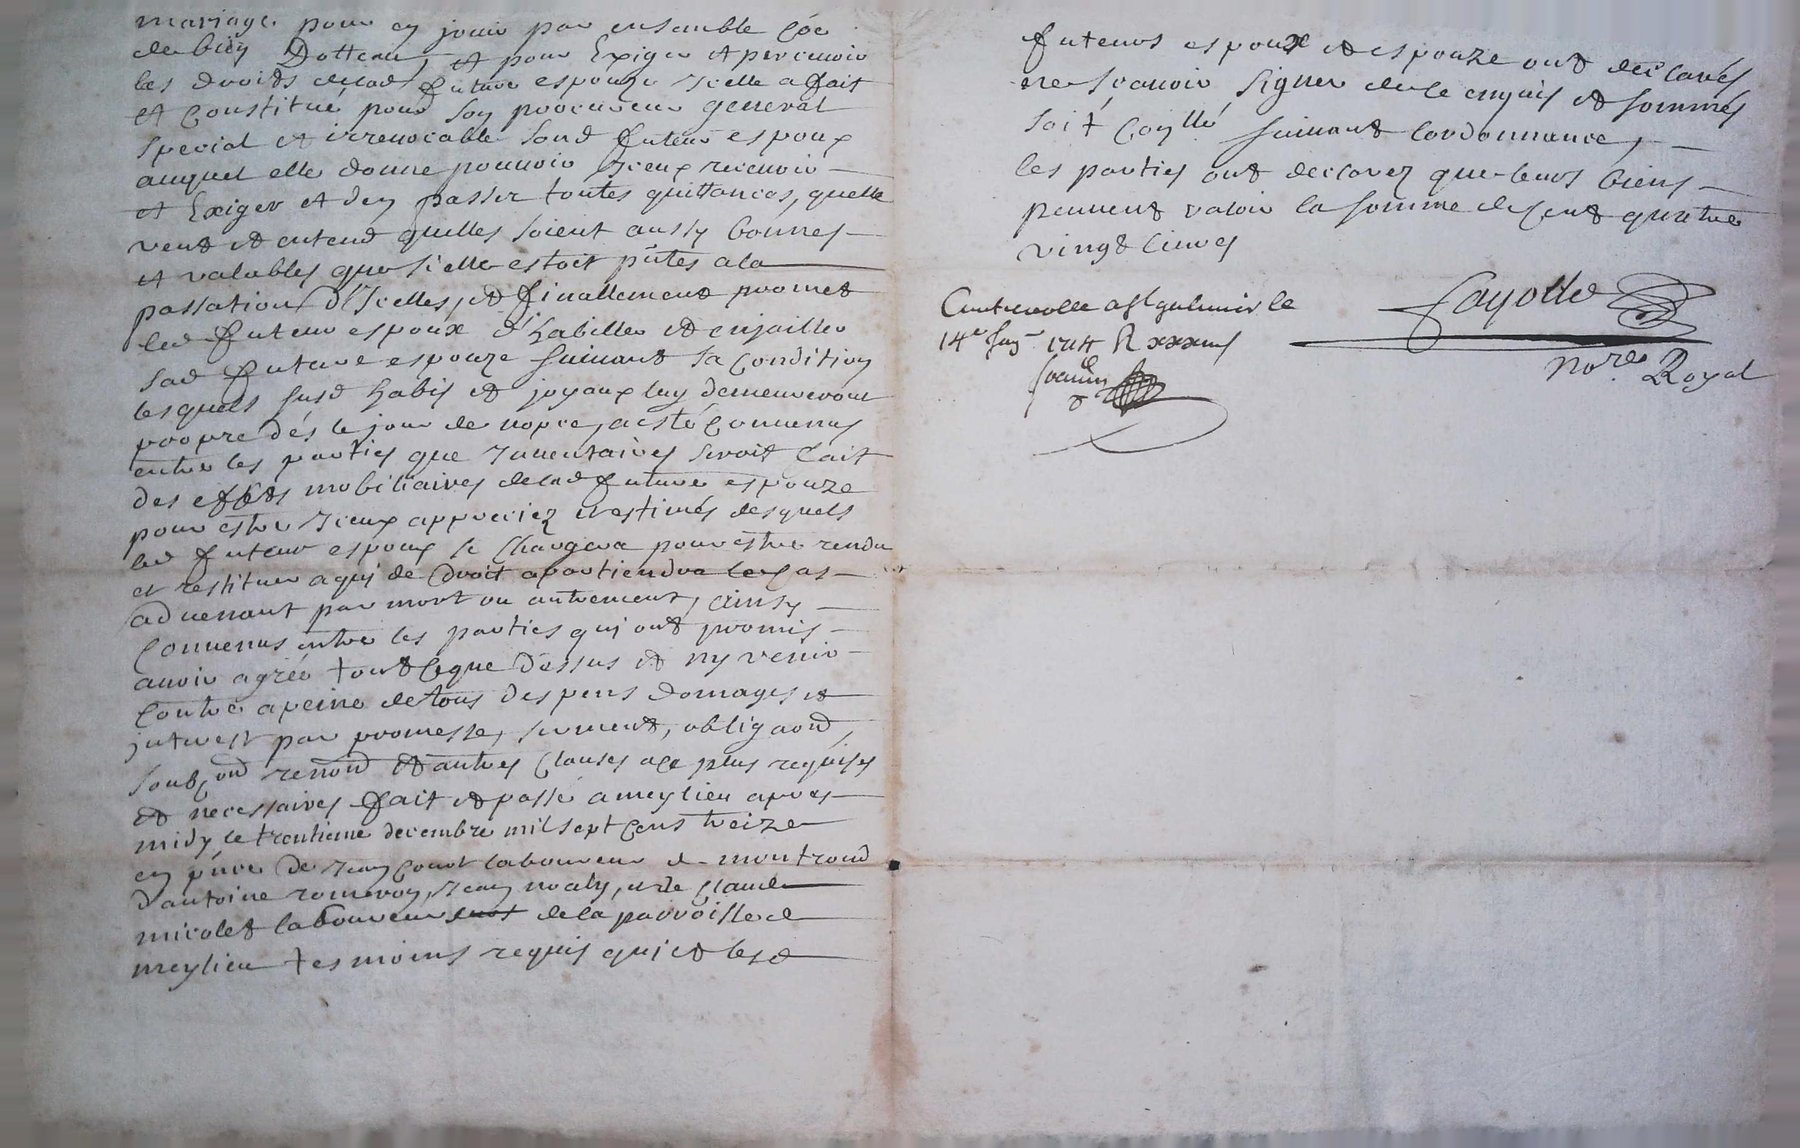 mariage pour en jouir par ensemble Coē
de bien Dottaux, et pour Exiger et percevoir
les droits delad future espouze Icelle a fait
et Constitué pour son procureur general
special et irrevocable sond futeur espoux
auquel elle donne pouvoir Iceux recevoir
et Exiger et den passer toutes quittances, quelle
veut et entend quelles soient aussy bonnes
et valables que si elle estoit pñtes a la
passation D'Icelles, et finallement promet
led futeur espoux d'habiller et enjoailler
sad future espouze suivant sa Condition
lesquels susd habis et joyaux luy demeureront
propre dés le jour de nopce, a esté Convenus
entre les parties que Inventaires seroit fait
des effets mobiliaires delad future espouze
pour estre Iceux appreciez et estimés desquels
led futeur espoux se Chargera pour estre rendu
et restituer a qui de droit apartiendra le Cas
advenant par mort ou autrement, ainsy
Convenus entre les parties qui ont promis
avoir agréé tout Ce que dessus et ny venir
Contre a peine de tous despens domages et
interest par promesse, serment, obligaond,
soubzond renond et autres Clauses a ce plus requises
et necessaires fait et passé a meylieu apres
midy le trentieme decembre mil sept Cens treize
en pñce de Jean Court laboureur de montrond
d'antoine romeyon, Jean noaly, et de Claude
micolet laboureur de la parroisse de
meylieu tesmoins requis qui et lesd
futeurs espoux et espouze ont declarés
ne scavoir signer de ce enquis et sommés
soit Coñllé suivant lordonnance,
les parties ont declarez que leurs biens
peuvent valoir la somme de Cent quatre
vingt livres
Controolle a St galmier le
14e Janr 1714 R xxx
Fayolle
Nore Royal